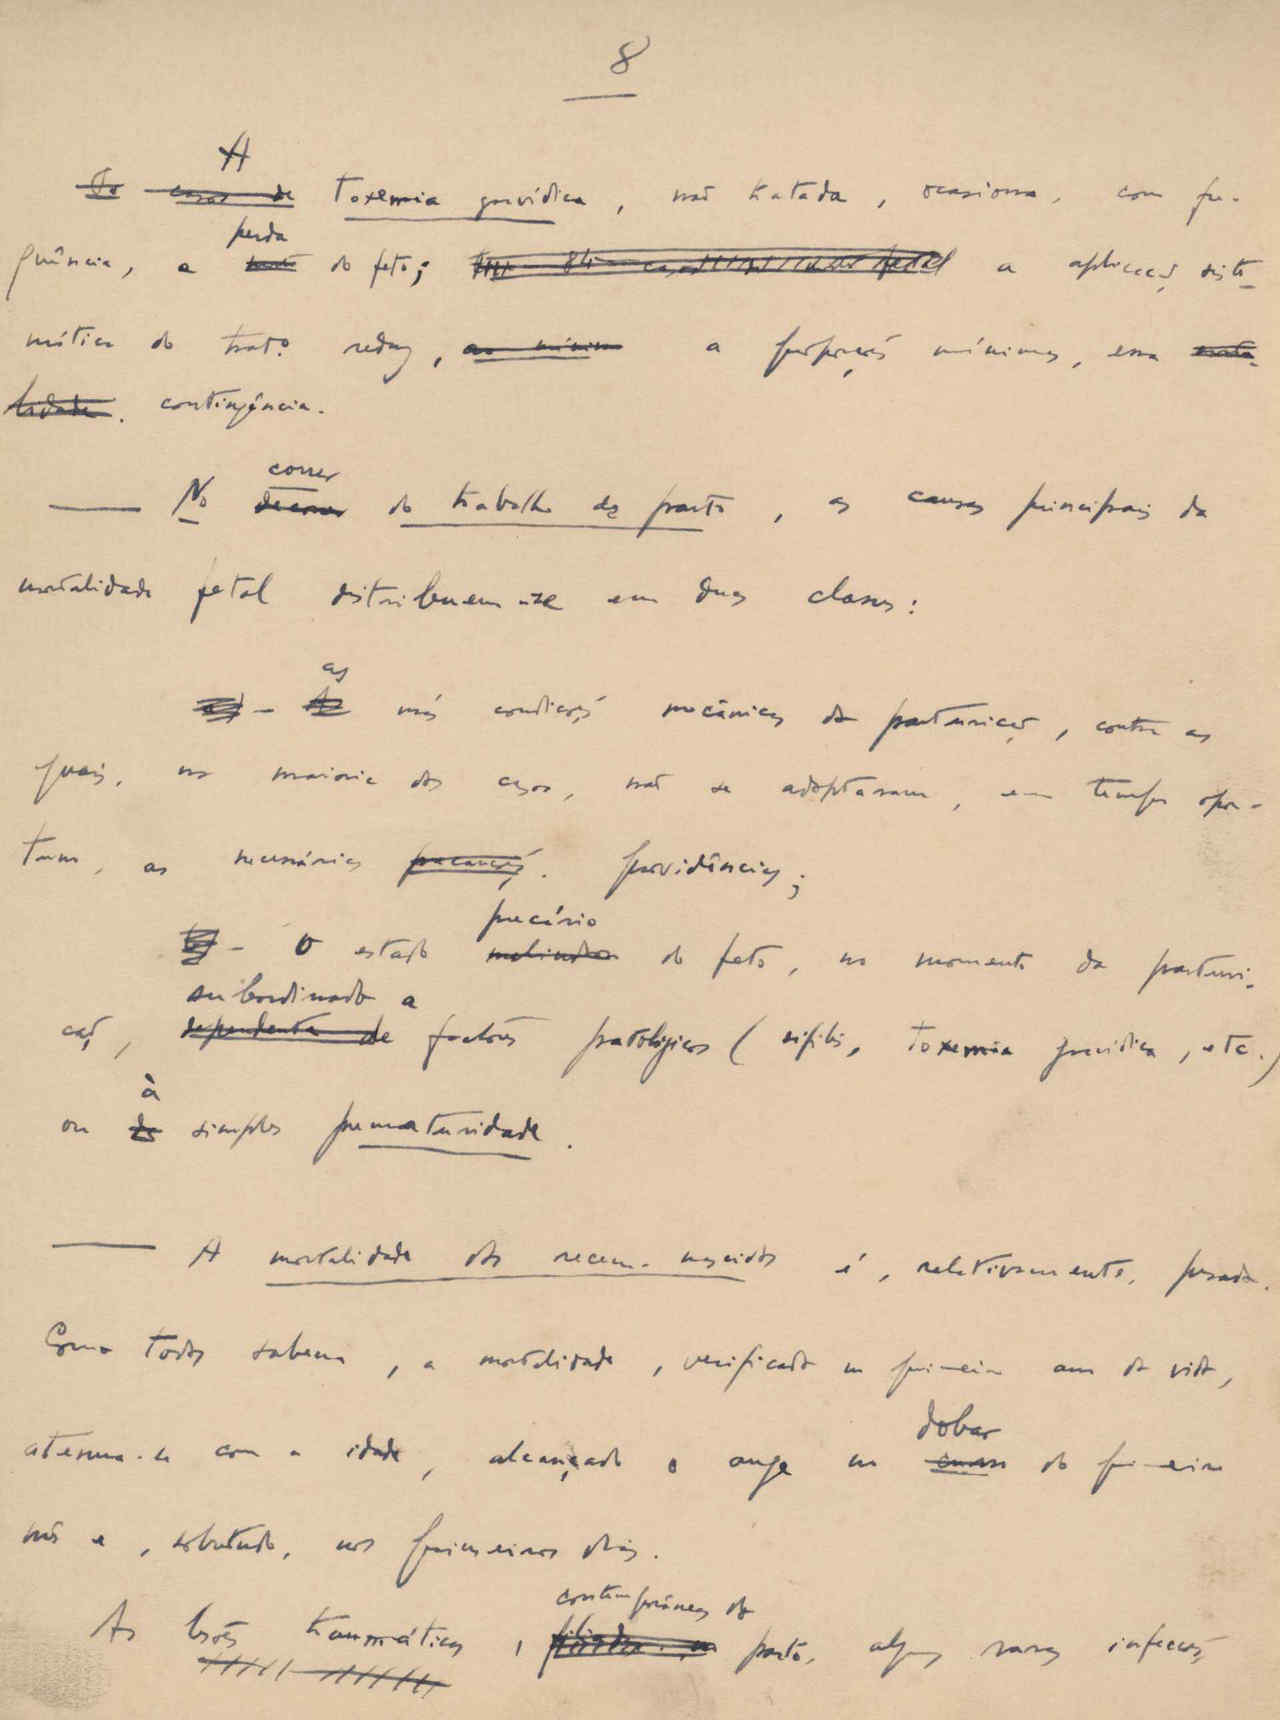 8
A
casos de Toxemia gravídica, não tratada, ocasiona, com fre-
perda
quência, a morte do feto; a aplicação siste-
mática do trat.º reduz, ao mínimo a proporções mínimas, essa morta-
lidade. contingência.
correr
No decorrer do trabalho de parto, as causas principais da
mortalidade fetal distribuem-se em duas classes:
as
a) - As más condições mecânicas da parturição, contra as
quais, na maioria dos casos, não se adoptaram, em tempo opor-
tuno, as necessárias precauções. providências;
precário
b) - O estado melindroso do feto, no momento da parturi-
subordinado a
ção, dependente de factores patológicos (sífilis, toxemia gravídica, etc.)
à
ou da simples prematuridade.
A mortalidade dos recem-nascidos é, relativamente, pesada.
Como todos sabem, a mortalidade, verificada no primeiro ano da vida,
atenua-se com a idade, alcançando o auge no
dobar
do primeiro
mês e, sobretudo, nos primeiros dias.
contemporâneas do
As lesões traumáticas, parto, algumas raras infecções,